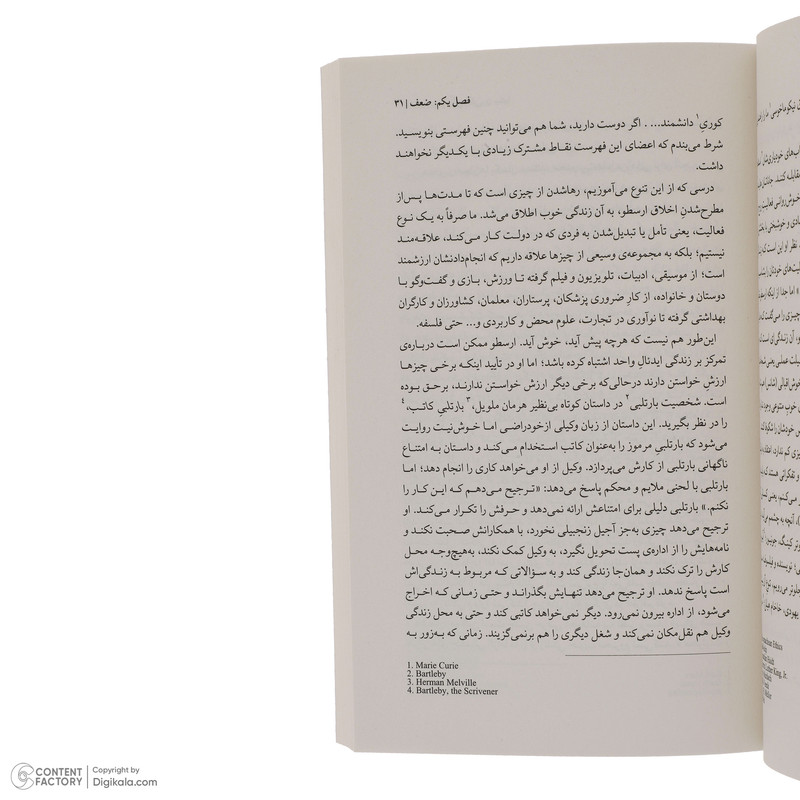 فصل یکم: ضعف | ۳۱
کوری۱ دانشمند... . اگر دوست دارید، شما هم می‌توانید چنین فهرستی بنویسید.
شرط می‌بندم که اعضای این فهرست نقاط مشترک زیادی با یکدیگر نخواهند
داشت.
درسی که از این تنوع می‌آموزیم، رهاشدن از چیزی است که تا مدت‌ها پس‌از
مطرح‌شدنِ اخلاق ارسطو، به آن زندگی خوب اطلاق می‌شد. ما صرفاً به یک نوع
فعالیت، یعنی تأمل یا تبدیل‌شدن به فردی که در دولت کار می‌کند، علاقه‌مند
نیستیم؛ بلکه به مجموعه‌ی وسیعی از چیزها علاقه داریم که انجام‌دادنشان ارزشمند
است؛ از موسیقی، ادبیات، تلویزیون و فیلم گرفته تا ورزش، بازی و گفت‌وگو با
دوستان و خانواده، از کارِ ضروری پزشکان، پرستاران، معلمان، کشاورزان و کارگران
بهداشتی گرفته تا نوآوری در تجارت، علوم محض و کاربردی و... حتی فلسفه.
این‌طور هم نیست که هرچه پیش آید، خوش آید. ارسطو ممکن است درباره‌ی
تمرکز بر زندگی ایدئالِ واحد اشتباه کرده باشد؛ اما او در تأیید اینکه برخی چیزها
ارزشِ خواستن دارند درحالی‌که برخی دیگر ارزش خواستن ندارند، برحق بوده
است. شخصیت بارتلبی۲ در داستان کوتاه بی‌نظیر هرمان ملویل،۳ بارتلبیِ کاتب،۴
را در نظر بگیرید. این داستان از زبان وکیلی ازخودراضی اما خوش‌نیت روایت
می‌شود که بارتلبیِ مرموز را به‌عنوان کاتب استخدام می‌کند و داستان به امتناع
ناگهانی بارتلبی از کارش می‌پردازد. وکیل از او می‌خواهد کاری را انجام دهد؛ اما
بارتلبی با لحنی ملایم و محکم پاسخ می‌دهد: «ترجیح می‌دهم که این کار را
نکنم.» بارتلبی دلیلی برای امتناعش ارائه نمی‌دهد و حرفش را تکرار می‌کند. او
ترجیح می‌دهد چیزی به‌جز آجیل زنجبیلی نخورد، با همکارانش صحبت نکند و
نامه‌هایش را از اداره‌ی پست تحویل نگیرد، به وکیل کمک نکند، به‌هیچ‌وجه محل
کارش را ترک نکند و همان‌جا زندگی کند و به سؤالاتی که مربوط به زندگی‌اش
است پاسخ ندهد. او ترجیح می‌دهد تنهایش بگذراند و حتی زمانی که اخراج
می‌شود، از اداره بیرون نمی‌رود. دیگر نمی‌خواهد کاتبی کند و حتی به محل زندگی
وکیل هم نقل‌مکان نمی‌کند و شغل دیگری را هم برنمی‌گزیند. زمانی که به‌زور به
1. Marie Curie
2. Bartleby
3. Herman Melville
4. Bartleby, the Scrivener
CONTENT FACTORY
Copyright by
Digikala.com